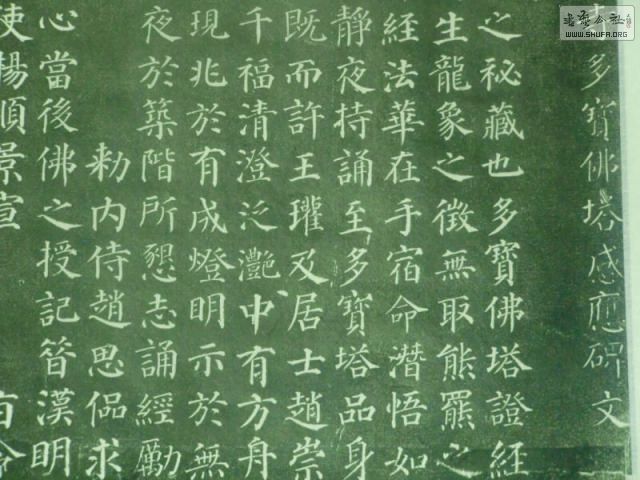 多寶佛塔感應碑文
之秘藏也多寶佛塔證經
生龍象之徵無取熊羆之
經法華在手宿命潛悟如
靜夜持誦至多寶塔品身
既而許王瓘及居士趙崇
千福清澄泛灔中有方舟
現兆於有成燈明示於無
夜於築階所懇志誦經勵
勑内侍趙思偘求
心當後佛之授記昔漢明
使楊順景宣
書法公社
WWW.SHUFA.ORG